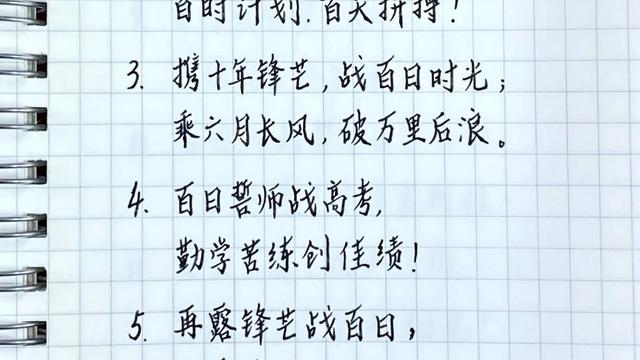 百时计划.百天拼搏!
3. 携十年锋艺,战百日时光;
乘六月长风,破万里后浪。
4. 百日誓师战高考,
勤学苦练创佳绩!
5. 再露锋艺战百日,